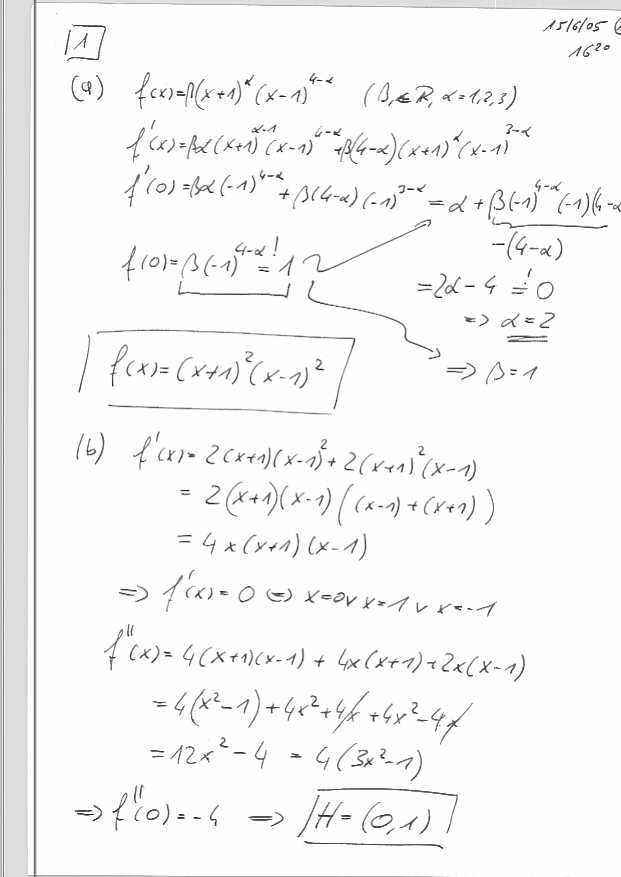 15/6/05
16²⁰
1
(a) f(x)=β(x+1)^α (x-1)^{4-α} (β∈ℝ, α=1,2,3)
f'(x)=βα(x+1)^{α-1}(x-1)^{4-α}+β(4-α)(x+1)^α(x-1)^{3-α}
f'(0)=βα(-1)^{4-α}+β(4-α)(-1)^{3-α}=α+β(-1)^{4-α}(-1)(4-α
-(4-α)
f(0)=β(-1)^{4-α}=!1
=2α-4=!0
=> α=2
=> β=1
f(x)=(x+1)²(x-1)²
(b) f'(x)=2(x+1)(x-1)²+2(x+1)²(x-1)
=2(x+1)(x-1)((x-1)+(x+1))
=4x(x+1)(x-1)
=> f'(x)=0 <=> x=0∨x=1∨x=-1
f''(x)=4(x+1)(x-1)+4x(x+1)+2x(x-1)
=4(x²-1)+4x²+4x+4x²-4x
=12x²-4=4(3x²-1)
=> f''(0)=-4 => H=(0,1)